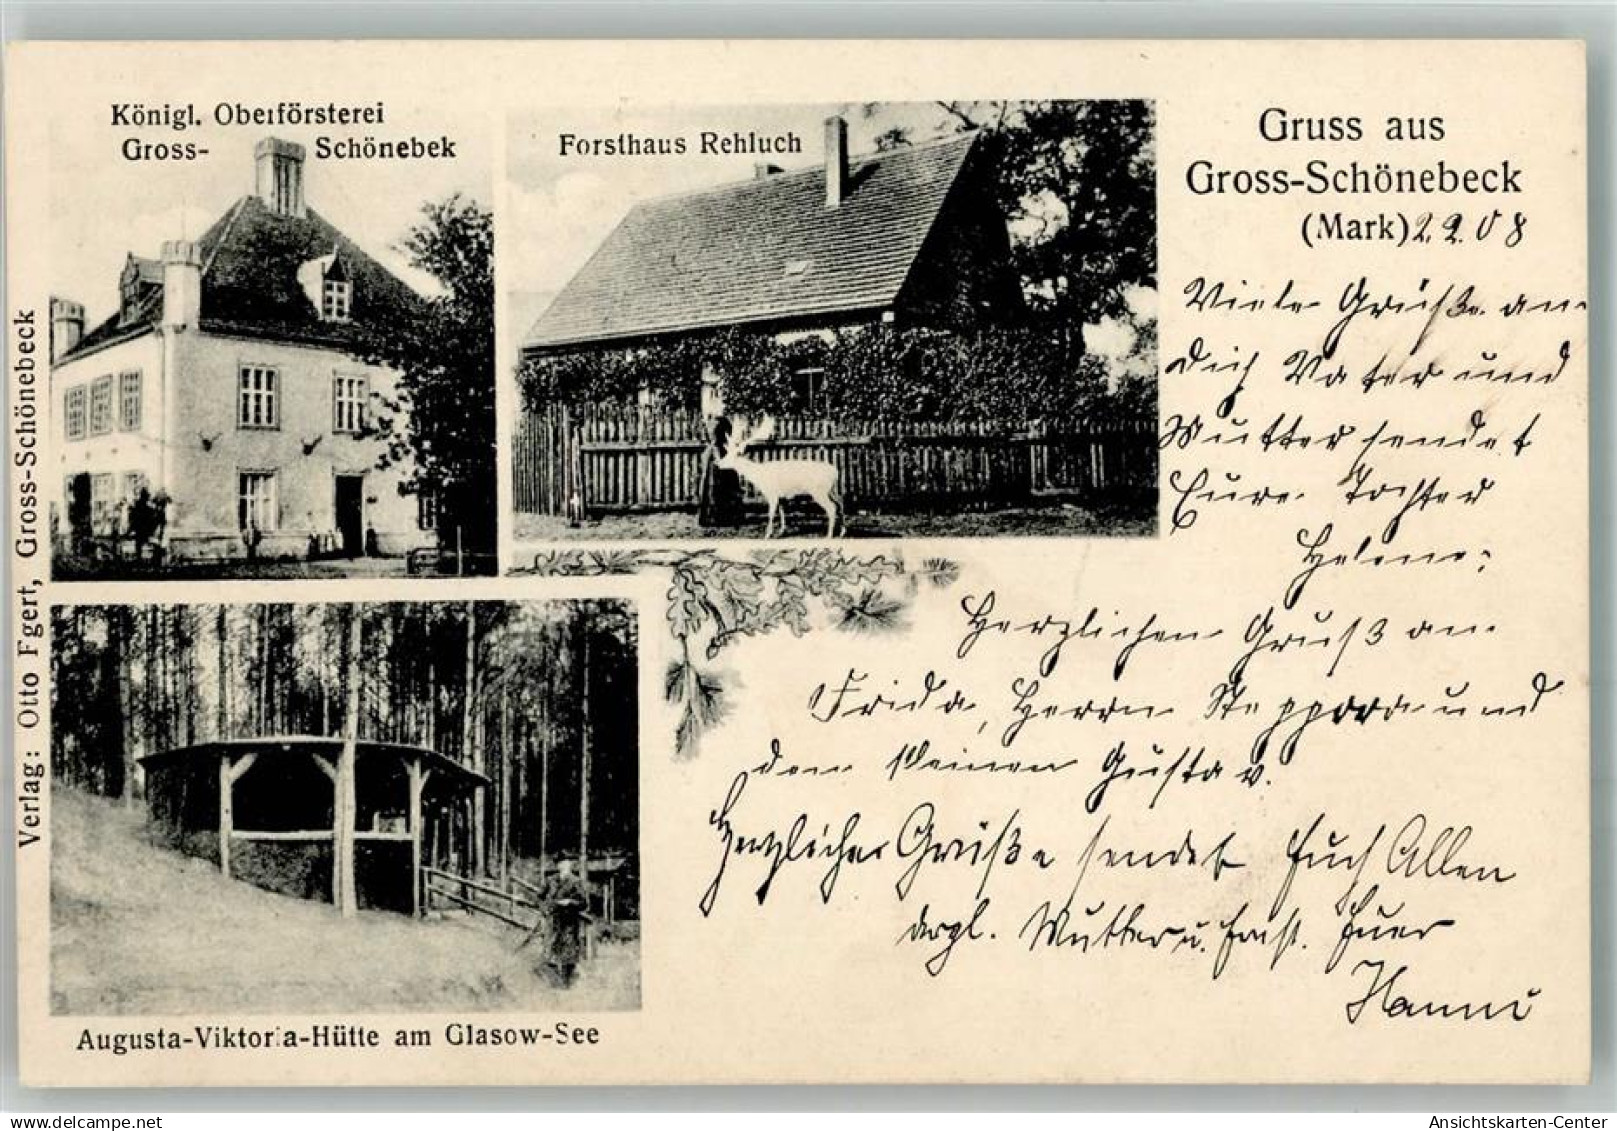 Königl. Oberförsterei
Gross- Schönebek
Forsthaus Rehluch
Gruss aus
Gross-Schönebeck
(Mark) 2.9.08
Viele Grüße an
Dich Vater und
Mutter sendet
Eure Tochter
Helene.
Herzlichen Gruß an
Frida, Herrn und
den kleinen Gustav.
Herzliche Grüße sendet Euch Allen
dergl. Mutter u. Ernst. Euer
Hanni
Augusta-Viktoria-Hütte am Glasow-See
Verlag: Otto Egert, Gross-Schönebeck
delcampe.net
Ansichtskarten-Center